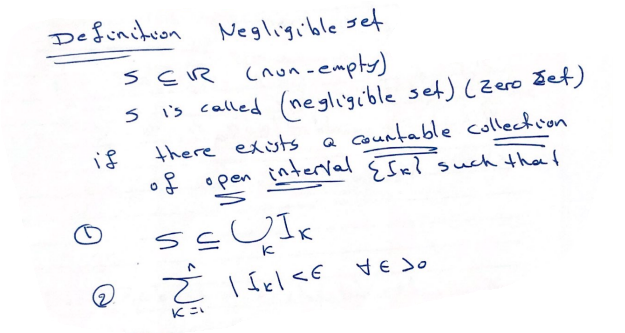 Definition Negligible set
S ⊆ ℝ (non-empty)
S is called (negligible set) (Zero Set)
if there exists a countable collection
of open interval {Iₖ} such that
① S ⊆ ⋃ₖ Iₖ
② ∑ₖ₌₁ⁿ |Iₖ| < ϵ ∀ ϵ > 0